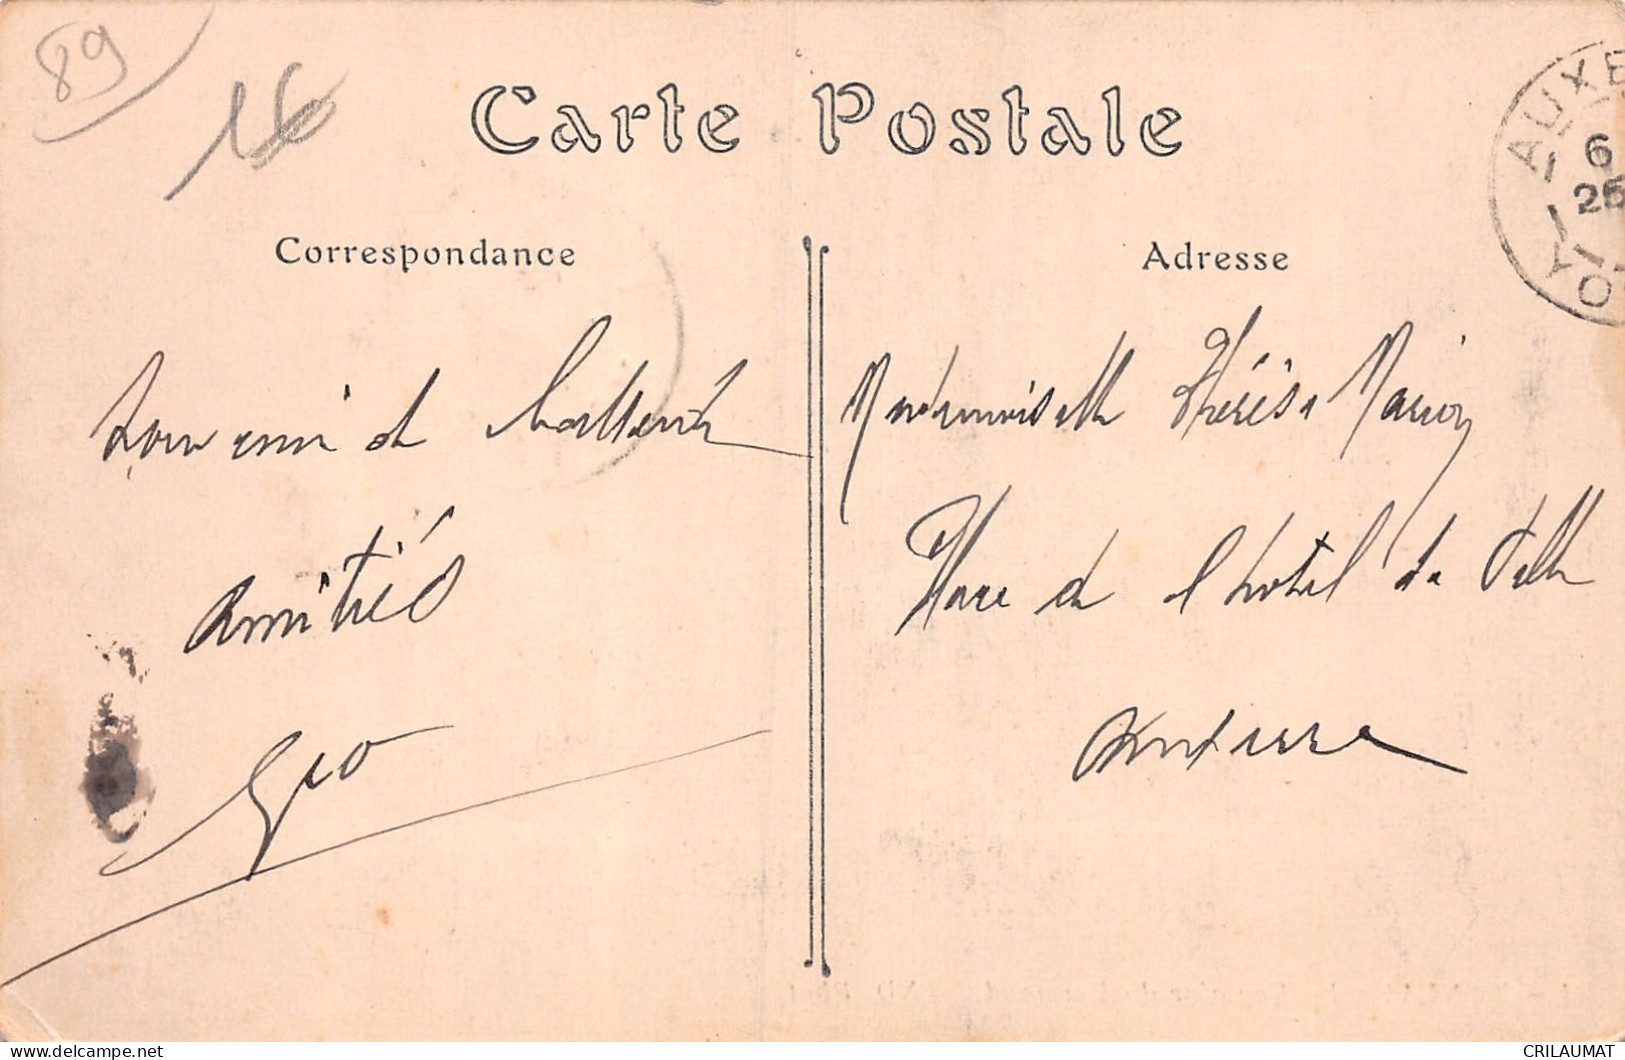 89
16
Carte Postale
AUXE
6
25
YO
Correspondance
Adresse
Souvenir de
Amitiés
Geo
Mademoiselle Thérèse Marion
Place de l'hotel de Ville
Auxerre
delcampe.net
CRILAUMAT